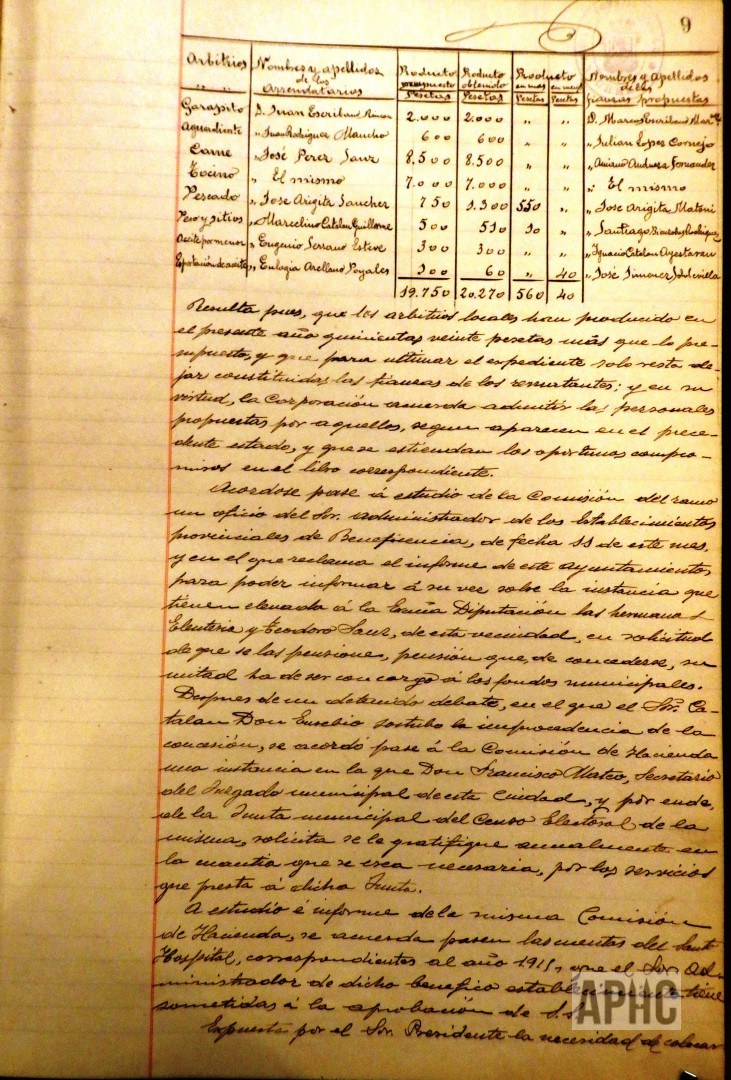 9
Arbitrios Nombres y apellidos de los arrendatarios Producto presupuesto Pesetas Producto obtenido Pesetas Producto en mas Pesetas en menos Pesetas Nombres y apellidos de las fianzas propuestas
Garapito D. Juan Escribano Rincon 2.000 2.000 " " D. Marcos Escribano
Aguardiente " Juan Rodriguez Mancho 600 600 " " " Julian Lopez Cornejo
Carne " José Perez Sanz 8.500 8.500 " " " Fernandez
Tocino " El mismo 7.000 7.000 " " " El mismo
Pescado " Jose Arigita Sanchez 750 1.300 550 " " Jose Arigita Matoni
Peso y sitios " Marcelino Catalan Guillorme 500 510 10 " " Santiago Rodriguez
Aceite por menor " Eugenio Serrano Esteve 300 300 " " " Ignacio Catalan Ayestaran
Exportación de aceite " Eulogia Arellano Poyales 100 60 " 40 " José Jimenez
19.750 20.270 560 40
Resulta pues, que los arbitrios locales han producido en
el presente año quinientas veinte pesetas más que lo pre-
supuesto, y que para ultimar el expediente solo resta de-
jar constituidas las fianzas de los rematantes; y en su
virtud, la Corporación acuerda admitir las personales
propuestas por aquellos, segun aparecen en el prece-
dente estado, y que se estiendan los oportunos compro-
misos en el libro correspondiente.
Acordose pase á estudio de la Comisión del ramo
un oficio del Sr. Administrador de los Establecimientos
provinciales de Beneficencia, de fecha 11 de este mes,
y en el que reclama el informe de este Ayuntamiento,
para poder informar á su vez sobre la instancia que
tienen elevada á la Excma Diputación las hermanas
Eleuteria y Teodora Sanz, de esta vecindad, en solicitud
de que se las pensione, pensión que, de concederse, su
mitad ha de ser con cargo á los fondos municipales.
Despues de un detenido debate, en el que el Sr. Ca-
talan Don Eusebio sostubo la improcedencia de la
concesión, se acordó pase á la Comisión de Hacienda
una instancia en la que Don Francisco Mateo, Secretario
del Juzgado municipal de esta Ciudad, y por ende,
de la Junta municipal del Censo Electoral de la
misma, solicita se le gratifique anualmente en
la cuantia que se crea necesaria, por los servicios
que presta á dicha Junta.
A estudio é informe de la misma Comisión
de Hacienda, se acuerda pasen las cuentas del Santo
Hospital, correspondientes al año 1911, que el Sr. Ad-
ministrador de dicho benefico establecimiento tiene
sometidas á la aprobación de S.S.
Expuesta por el Sr. Presidente la necesidad de colocar
APHC